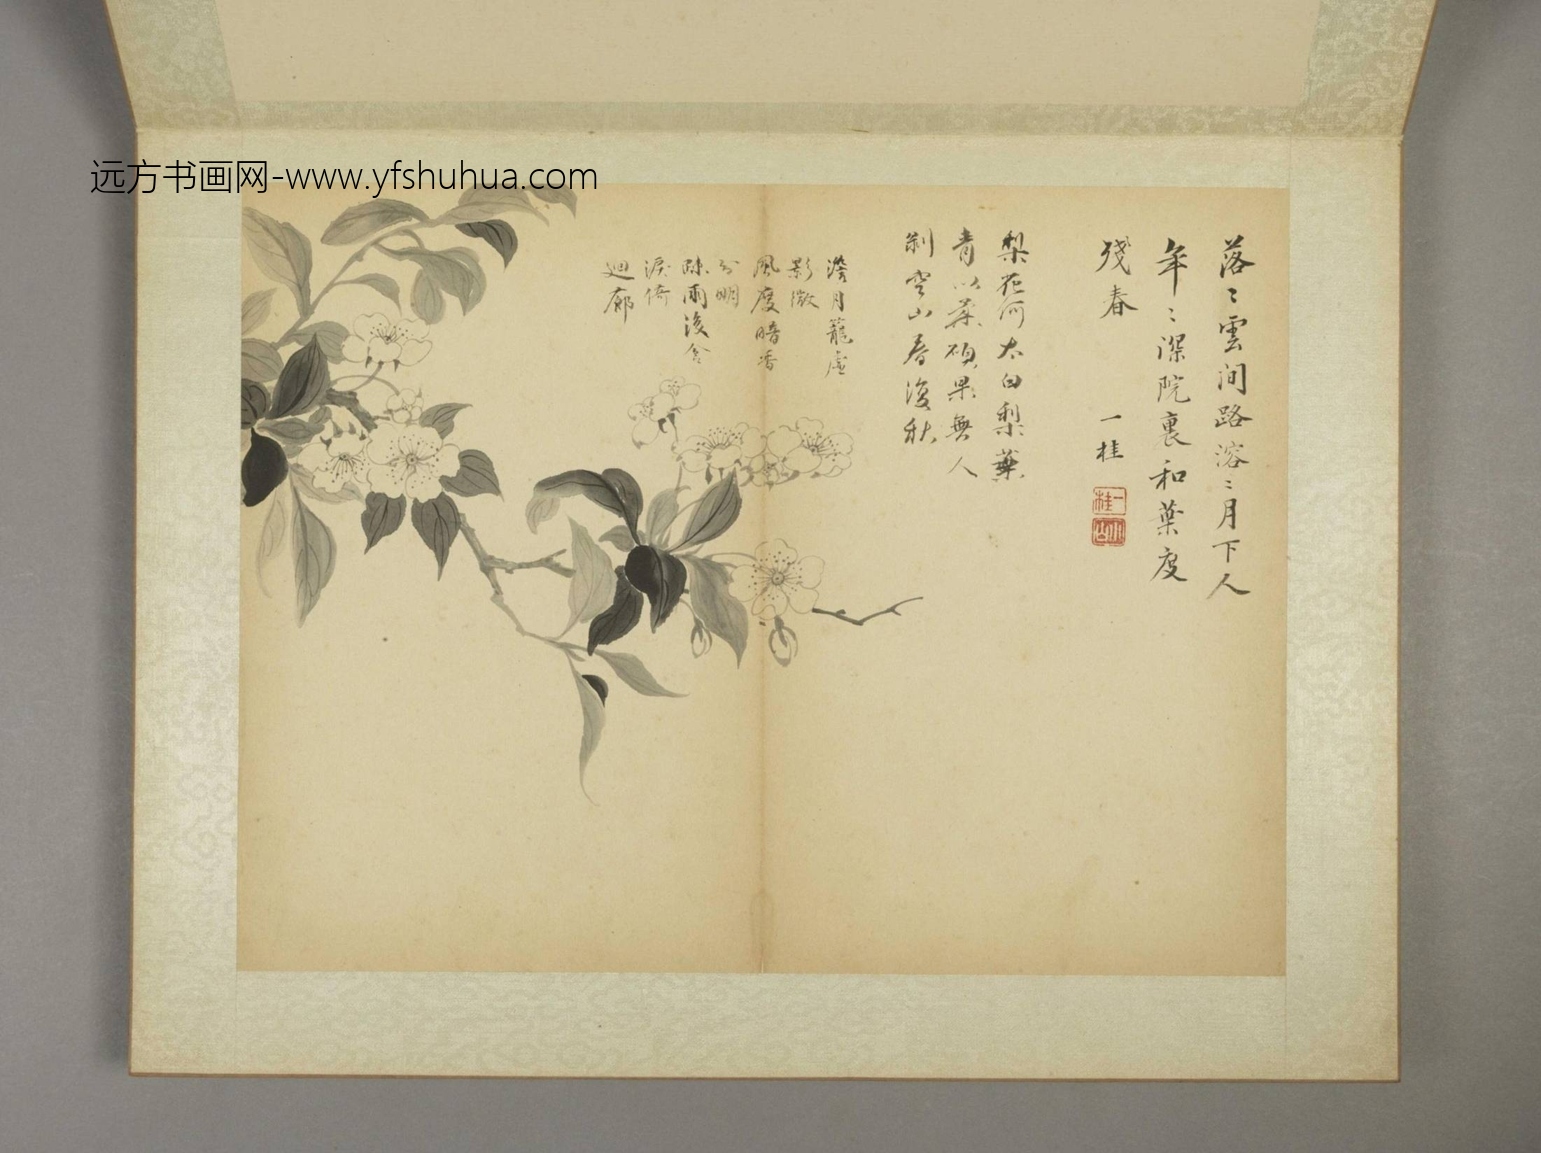 远方书画网-www.yfshuhua.com
落〻雲间路溶〻月下人
年〻深院裏和葉度
殘春
一桂
一桂
梨花何太白梨葉
青以葉碩果無人
剥空山春復秋
澹月籠虛
影微
風度暗香
分明
疎雨後含
淚倚
迴廊